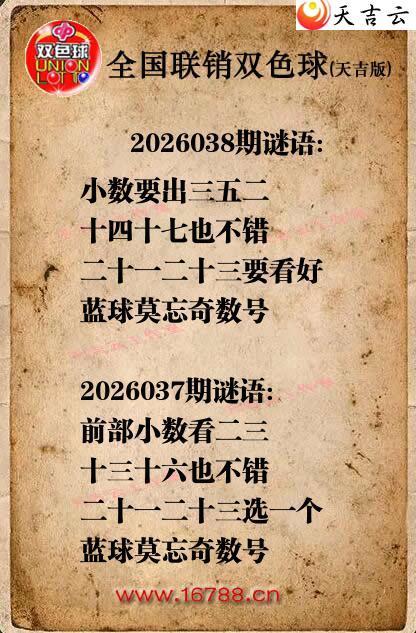 天吉云
双色球
UNION
LOTTO
全国联销双色球(天吉版)
2026038期谜语:
小数要出三五二
十四十七也不错
二十一二十三要看好
蓝球莫忘奇数号
2026037期谜语:
前部小数看二三
十三十六也不错
二十一二十三选一个
蓝球莫忘奇数号
www.16788.cn